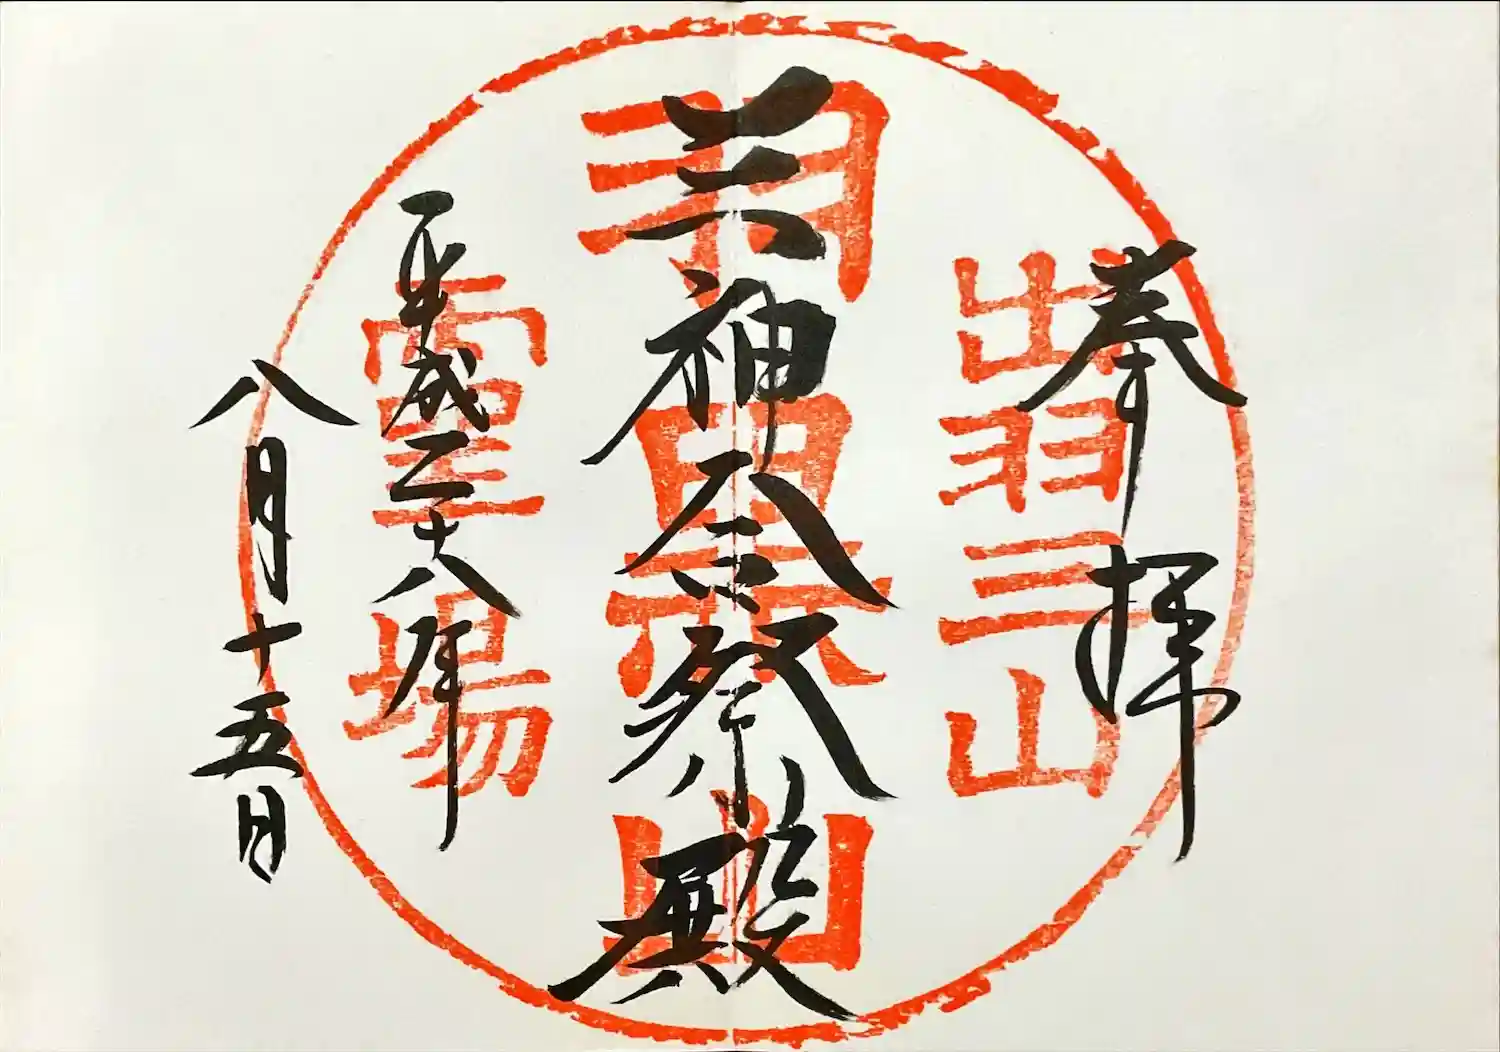 奉拝
出羽三山
三神合祭殿
羽黒山
平成二十八年
霊場
八月十五日